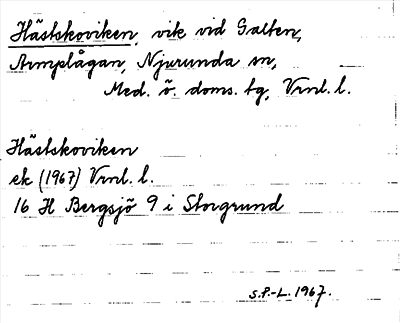 Hästskoviken, vik vid Galten,
Armplågan, Njurunda sn,
Med. ö. doms. tg, Vrnl. l.
Hästskoviken
ek (1967) Vrnl. l.
16 H Bergsjö 9 i Storgrund
S.P.-L. 1967.